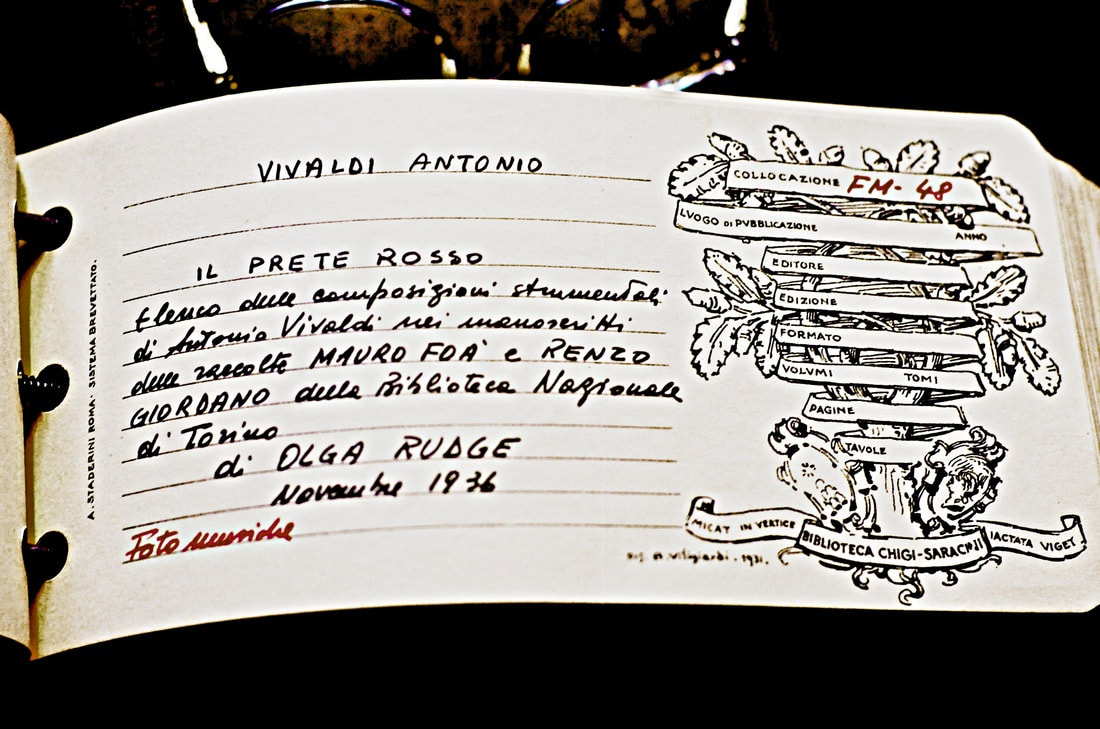 VIVALDI ANTONIO
IL PRETE ROSSO
Elenco delle composizioni strumentali
di Antonio Vivaldi nei manoscritti
delle raccolte MAURO FOA' e RENZO
GIORDANO della Biblioteca Nazionale
di Torino
di OLGA RUDGE
Novembre 1936
Foto musiche
A. STADERINI ROMA · SISTEMA BREVETTATO.
COLLOCAZIONE FM-48
LVOGO DI PVBBLICAZIONE ANNO
EDITORE
EDIZIONE
FORMATO
VOLVMI TOMI
PAGINE
TAVOLE
MICAT IN VERTICE
BIBLIOTECA CHIGI-SARACINI
IACTATA VIGET
A. Viligiardi · 1931.